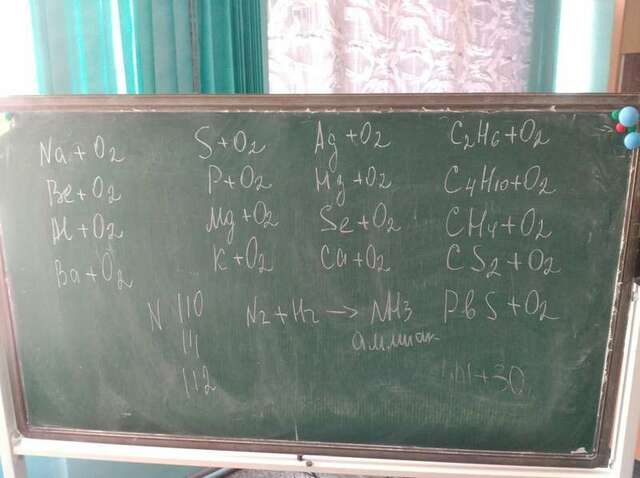 Na + O2
Be + O2
Al + O2
Ba + O2
S + O2
P + O2
Mg + O2
K + O2
Ag + O2
Hg + O2
Se + O2
Ca + O2
C2H6 + O2
C4H10 + O2
CH4 + O2
CS2 + O2
PbS + O2
N 110
111
112
N2 + H2 → NH3
аммиак